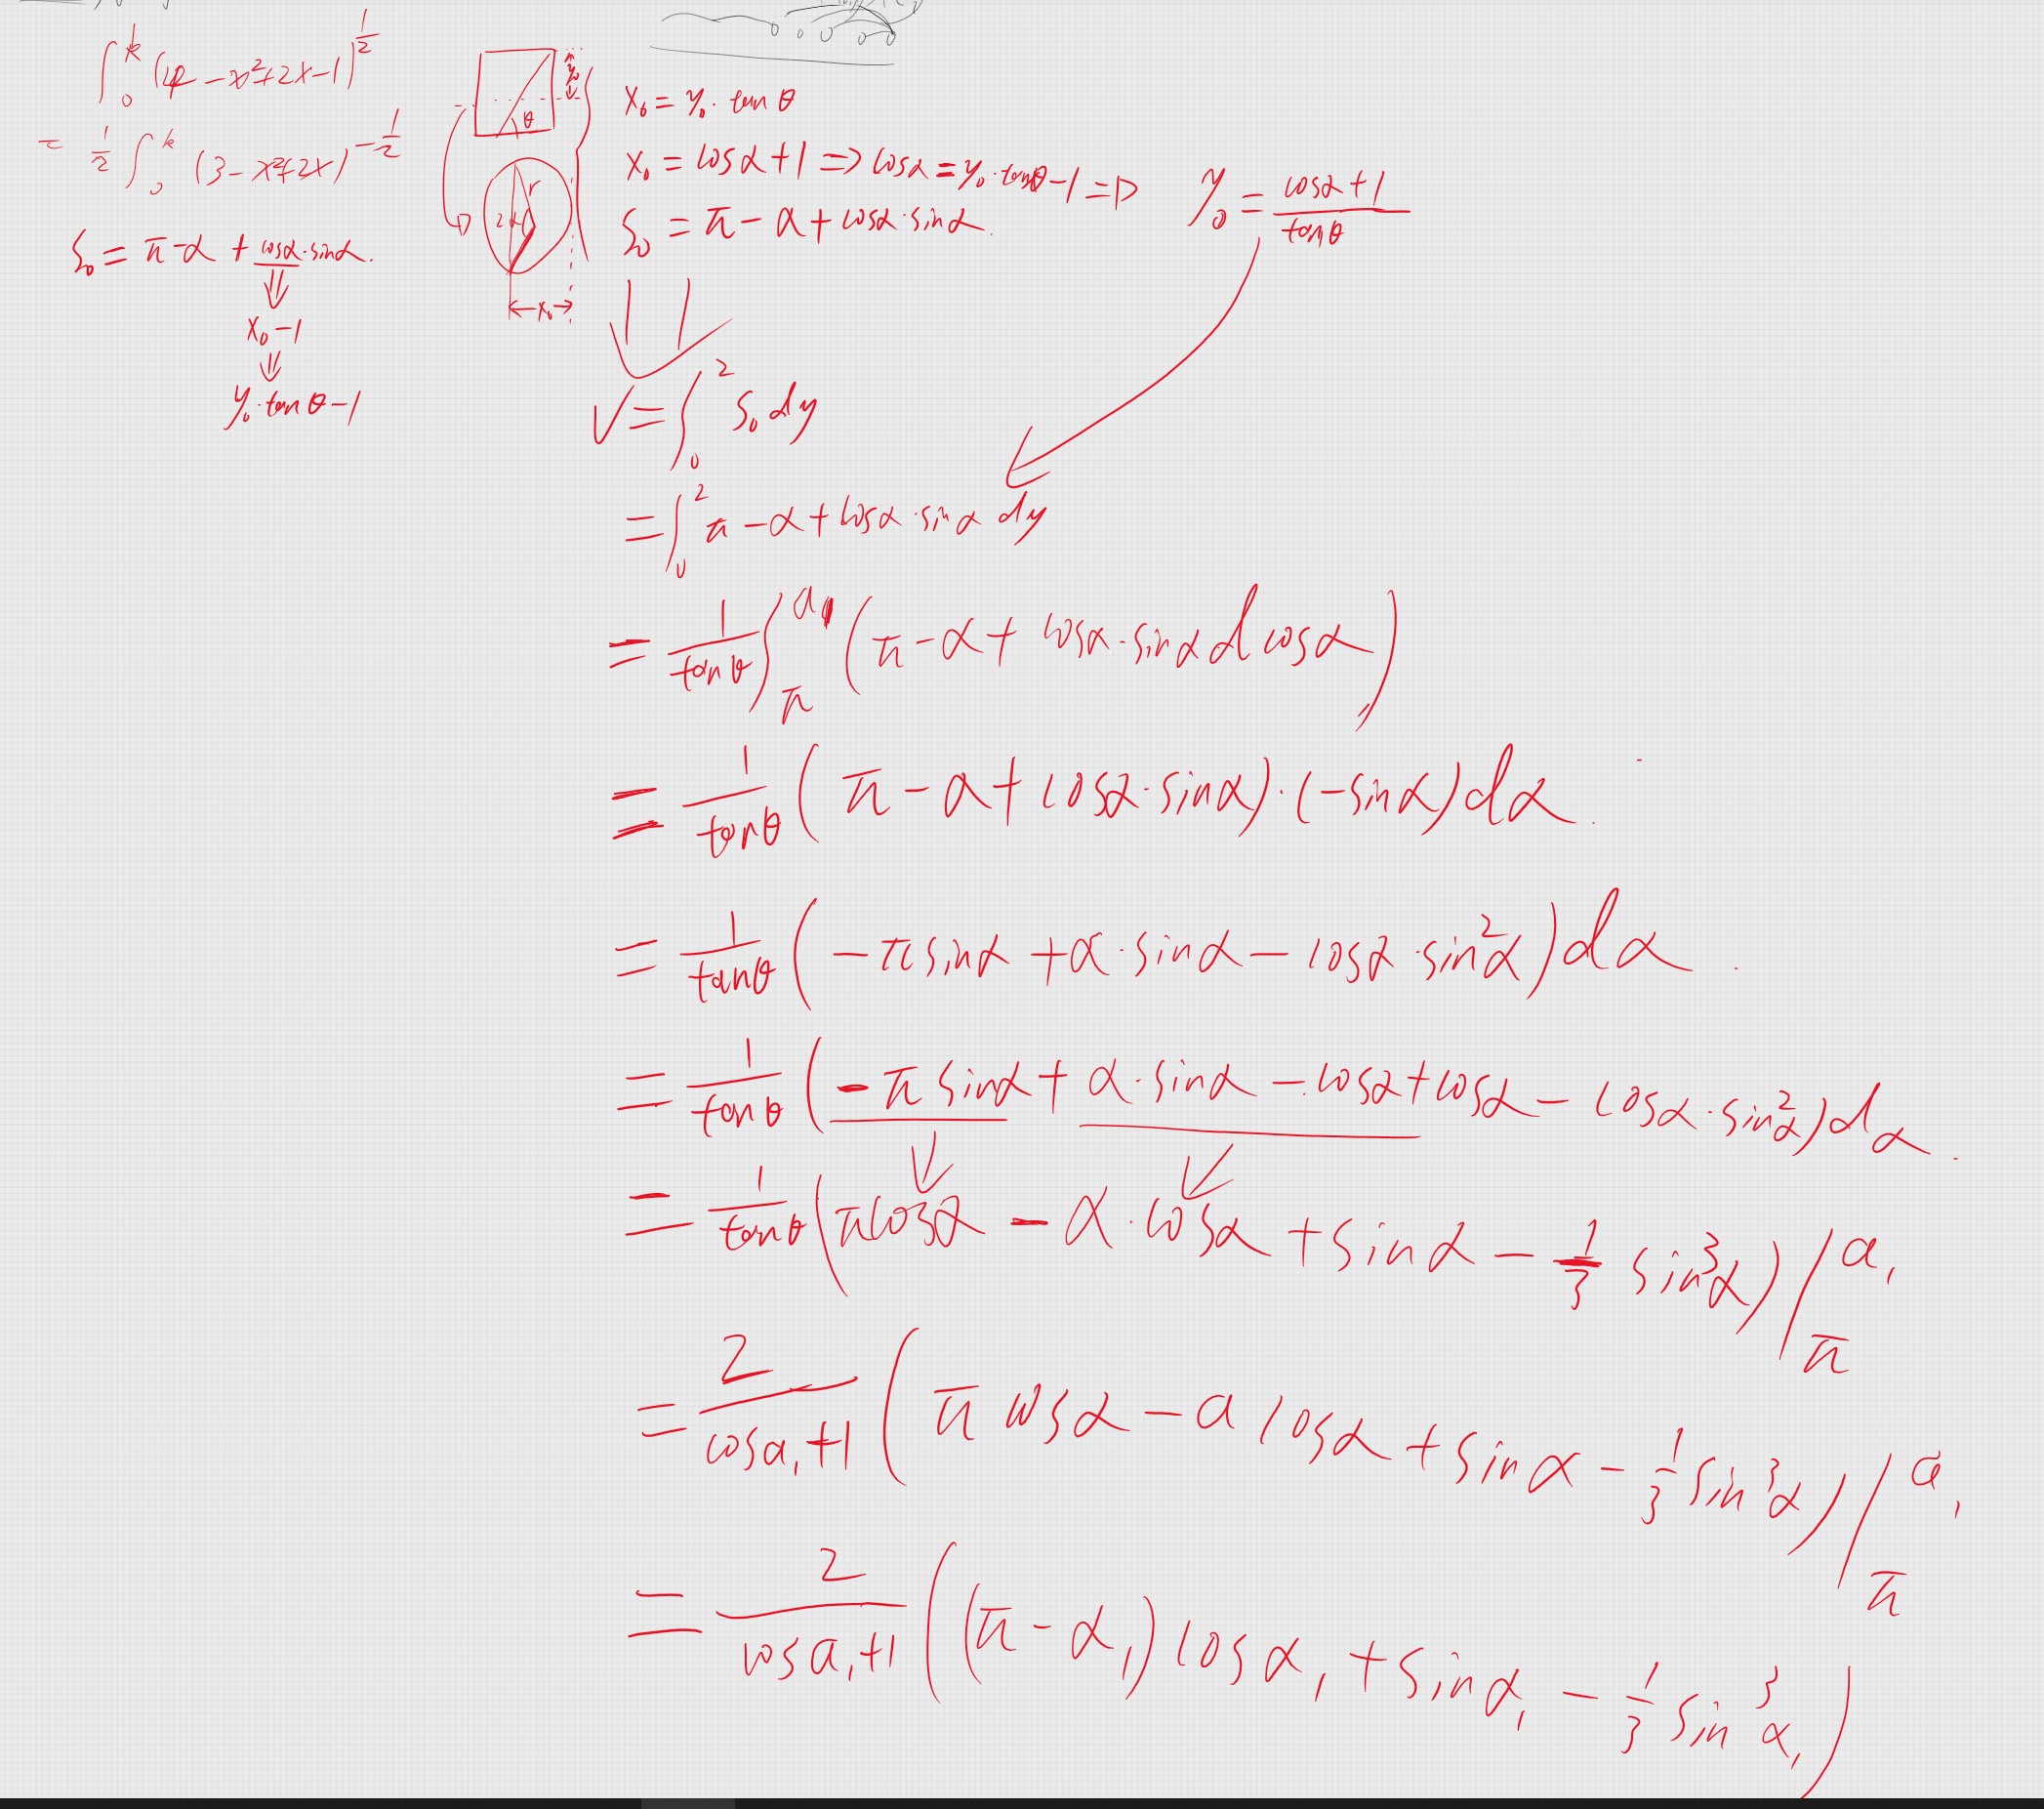 ∫₀ᵏ (4 - x² + 2x - 1)^{1/2}
= 1/2 ∫₀ᵏ (3 - x² + 2x)^{-1/2}
S₀ = π - α + cosα·sinα.
⇓
x₀ - 1
⇓
y₀·tanθ - 1
y₀
θ
r
2α
x₀
x₀ = y₀·tanθ
x₀ = cosα + 1 => cosα = y₀·tanθ - 1 => y₀ = (cosα + 1)/tanθ
S₀ = π - α + cosα·sinα.
V = ∫₀² S₀ dy
= ∫₀² π - α + cosα·sinα dy
= 1/tanθ ∫_π^{a₁} (π - α + cosα·sinα d cosα)
= 1/tanθ (π - α + cosα·sinα)·(-sinα)dα.
= 1/tanθ (-π sinα + α·sinα - cosα·sin²α)dα.
= 1/tanθ (-π sinα + α·sinα - cosα + cosα - cosα·sin²α)dα.
= 1/tanθ (π cosα - α·cosα + sinα - 1/3 sin³α) |_π^{a₁}
= 2/(cos a₁ + 1) (π cosα - a cosα + sinα - 1/3 sin³α) |_π^{a₁}
= 2/(cos a₁ + 1) ((π - α₁) cosα₁ + sinα₁ - 1/3 sin³α₁)